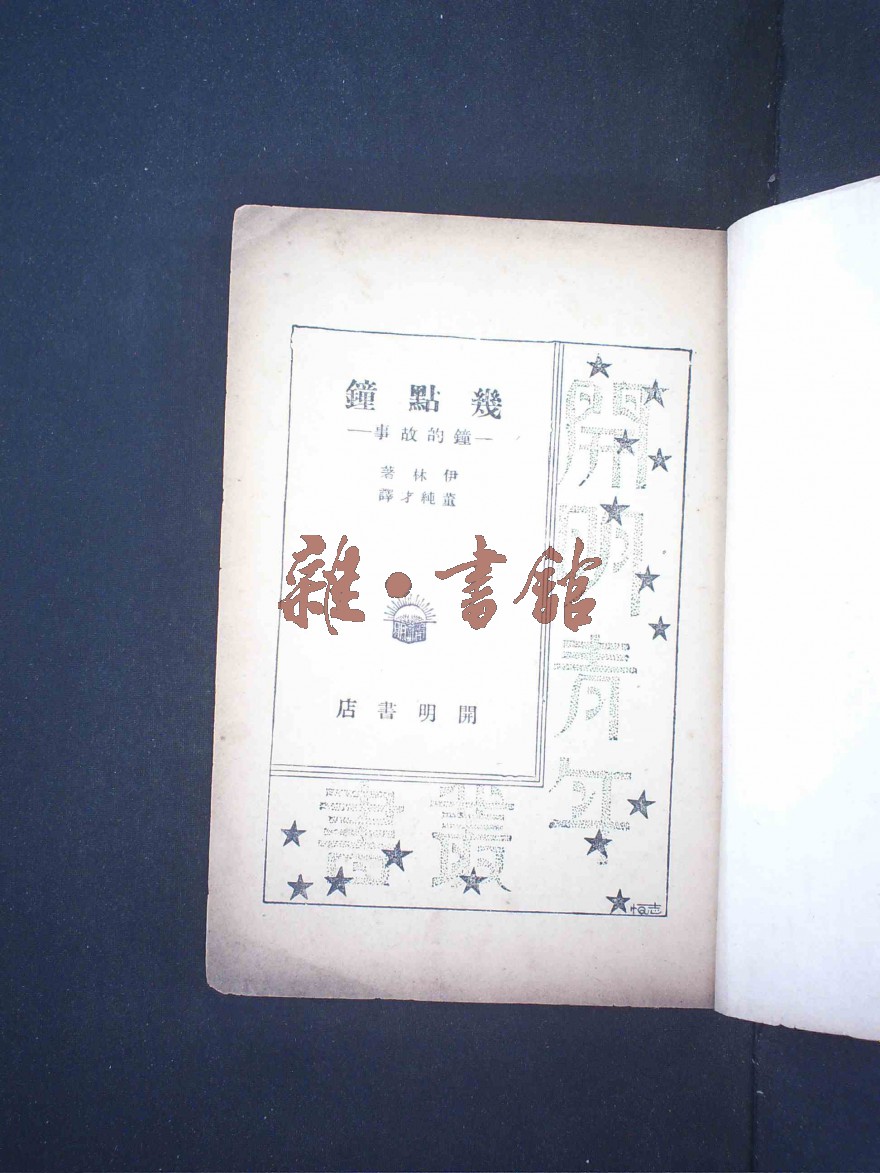 幾點鐘
—鐘的故事—
伊林著
董純才譯
雜•書舘
開明書店
開明青年
叢書